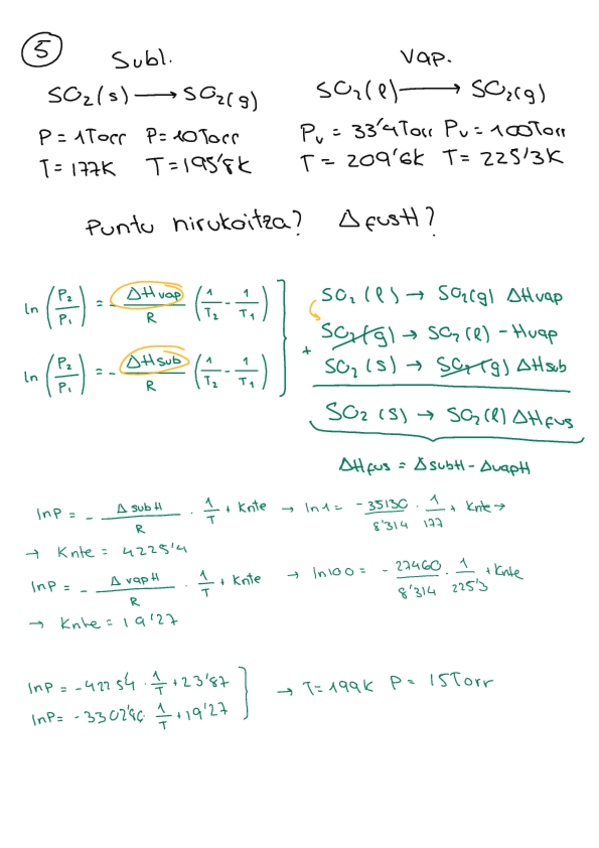 5
Subl. Vap.
SO₂(s) → SO₂(g) SO₂(l) → SO₂(g)
P = 1Torr P = 10Torr Pv = 33'4Torr Pv = 100Torr
T = 177K T = 195'8K T = 209'6K T = 225'3K
Puntu hirukoitza? ΔfusH?
ln (P₂/P₁) = - ΔHvap/R (1/T₂ - 1/T₁)
ln (P₂/P₁) = - ΔHsub/R (1/T₂ - 1/T₁)
SO₂(l) → SO₂(g) ΔHvap
SO₂(g) → SO₂(l) - Hvap
+ SO₂(s) → SO₂(g) ΔHsub
SO₂(s) → SO₂(l) ΔHfus
ΔHfus = ΔsubH - ΔvapH
lnP = - ΔsubH/R · 1/T + Knte → ln1 = -35130/8'314 · 1/177 + Knte →
→ Knte = 4225'4
lnP = - ΔvapH/R · 1/T + Knte → ln100 = - 27460/8'314 · 1/225'3 + Knte
→ Knte = 19'27
lnP = -4225'4 · 1/T + 23'87
lnP = -3302'90 1/T + 19'27
→ T = 199K P = 15Torr